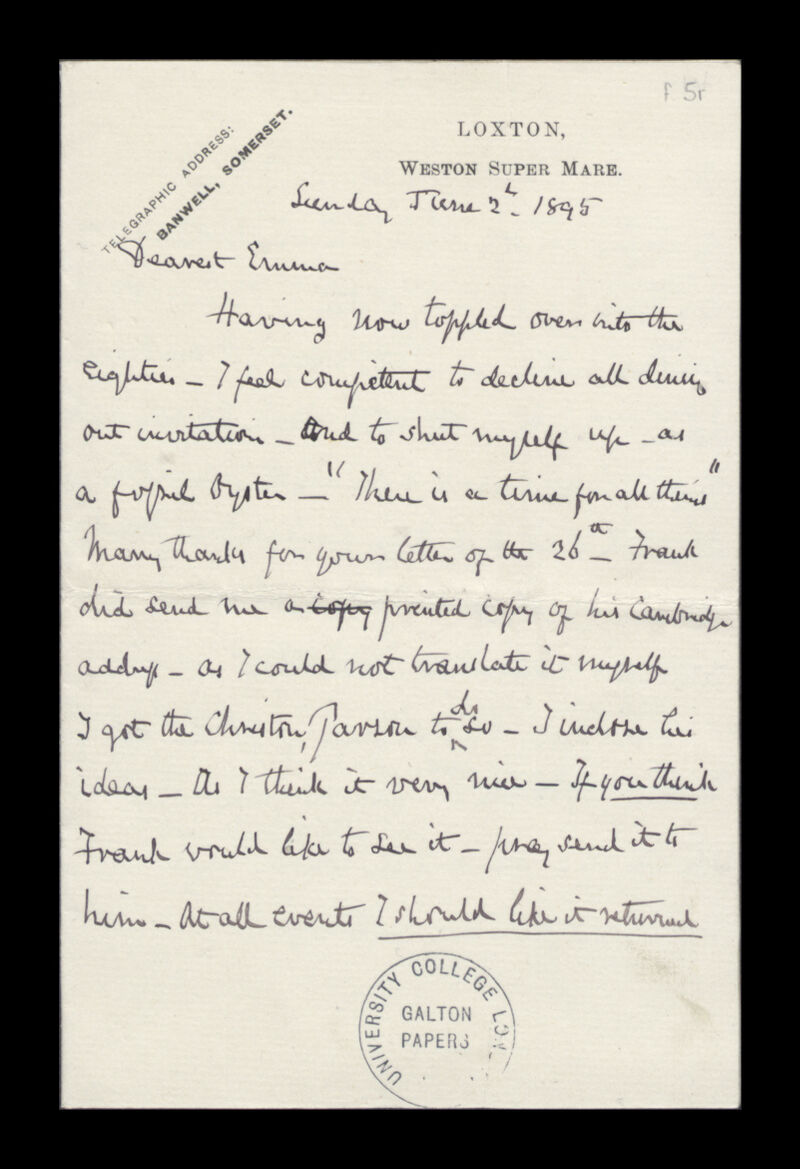 f. 5r
TELEGRAPHIC ADDRESS:
BANWELL, SOMERSET.
LOXTON,
WESTON SUPER MARE.
Sunday June 2d. 1895
Dearest Emma
Having now toppled over into the
Eighties – I feel competent to decline all dining
out invitation – And to shut myself up – as
a fossil Oyster – "There is a time for all things"
Many thanks for your letter of the 26th – Frank
did send me a copy printed copy of his Cambridge
address – as I could not translate it myself
I got the Christon Parson to do so – I inclose his
ideas – As I think it very nice – If you think
Frank would like to see it – pray send it to
him – At all events I should like it returned
UNIVERSITY COLLEGE
GALTON
PAPERS